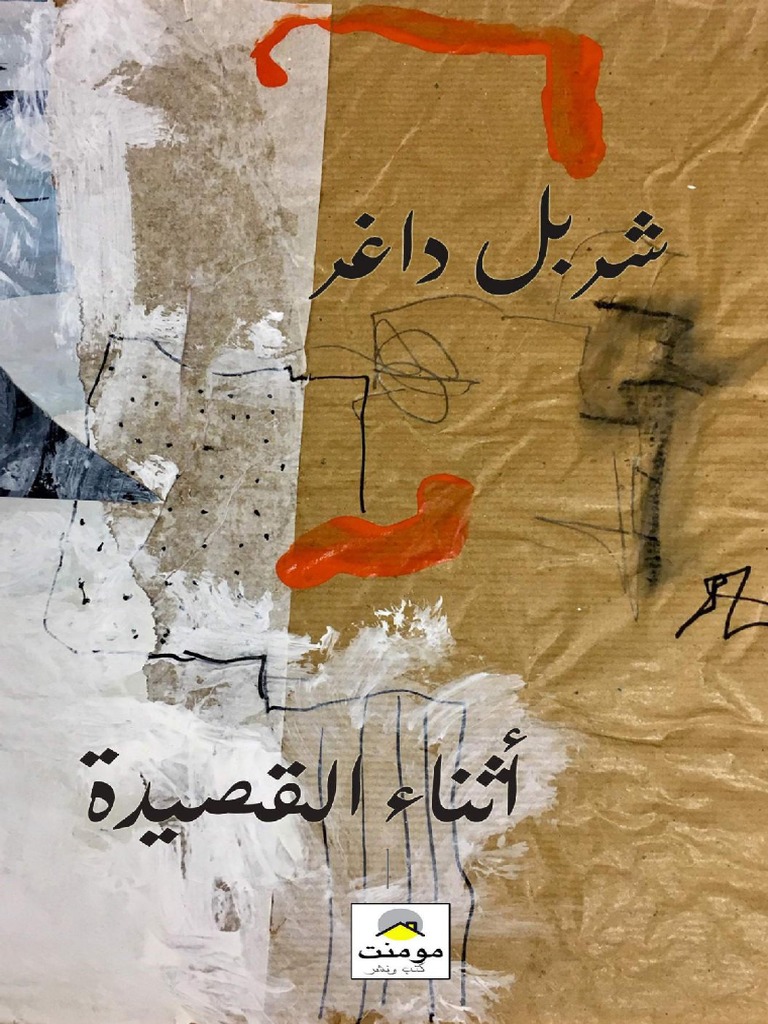 شربل داغر
أثناء القصيدة
مومنت
كتب ونشر